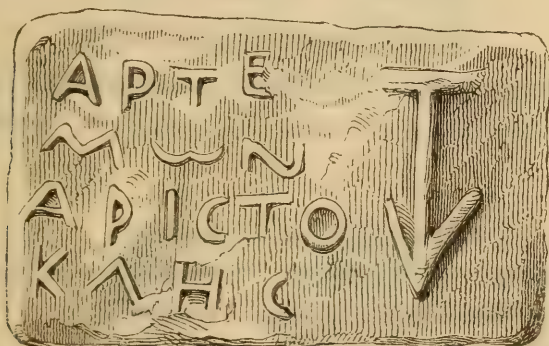 ΑΡΤΕ
ΜΩΝ
ΑΡΙϹΤΟ
ΚΛΗϹ